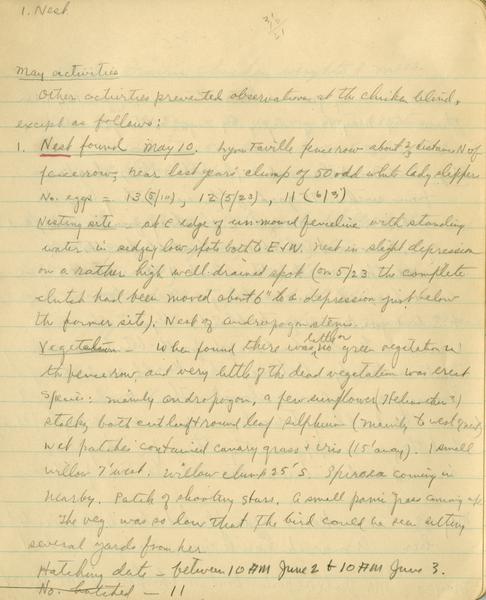 1. Nest
May activities
Other activities prevented observations at the chicken blind,
except as follows:
1. Nest found May 10. Lyon-Taville fence row about 2/3 distance N of
fence row, near last year's clump of 50 odd white lady slipper
No. eggs = 13 (5/10), 12 (5/23), 11 (6/3)
Nesting site - at E edge of un-mowed fenceline with standing
water in sedgy low spots both to E & W. Nest in slight depression
on a rather high well drained spot (on 5/23 the complete
clutch had been moved about 6" to a depression just below
the former site). Nest of andropogon stems
Vegetation - When found there was little or no green vegetation in
the fence row, and very little of the dead vegetation was erect
Species: mainly andropogon, a few sunflower (Helianthus)
stalks, both cut leaf & round leaf silphium (mainly to west
Wet patches contained canary grass & iris (15' away). 1 small
willow 7' west. Willow clump 25' S. Spiraea coming in
nearby. Patch of shooting stars. A small panic grass coming up.
The veg. was so low that the bird could be seen sitting
several yards from her.
Hatching date - between 10 AM June 2 & 10 AM June 3.
No. hatched - 11